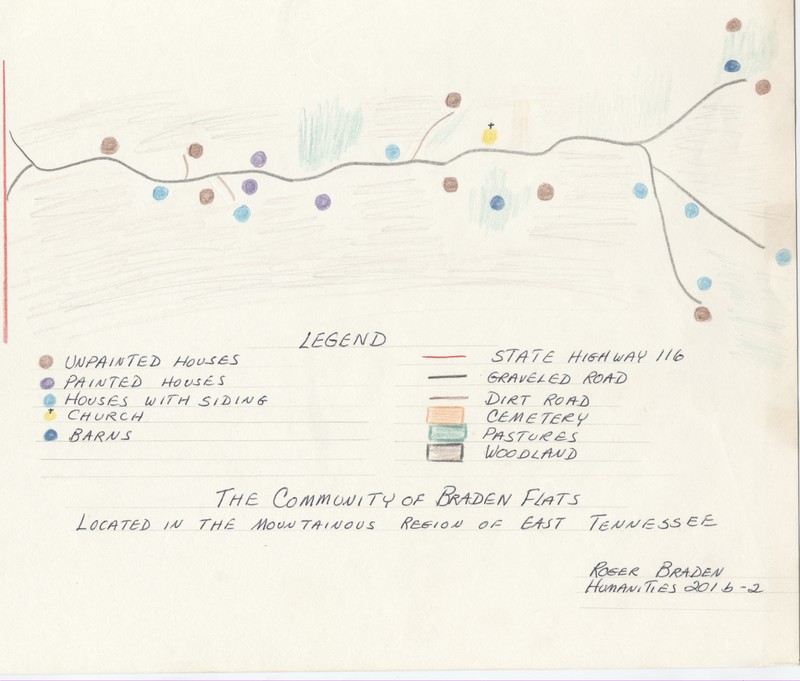 LEGEND
UNPAINTED HOUSES
PAINTED HOUSES
HOUSES WITH SIDING
CHURCH
BARNS
STATE HIGHWAY 116
GRAVELED ROAD
DIRT ROAD
CEMETERY
PASTURES
WOODLAND
THE COMMUNITY OF BRADEN FLATS
LOCATED IN THE MOUNTAINOUS REGION OF EAST TENNESSEE
ROGER BRADEN
HUMANITIES 201 b-2